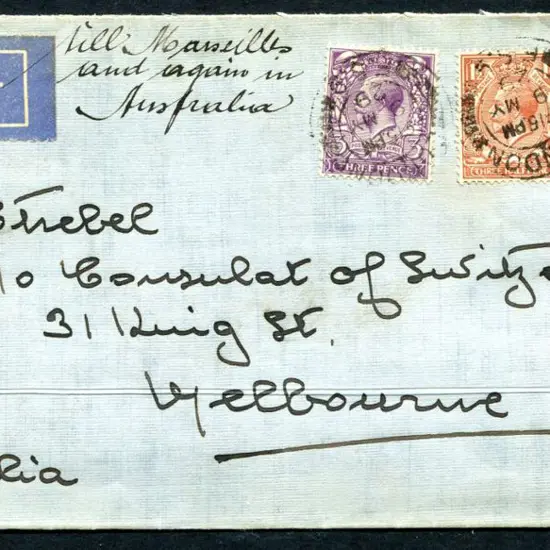 till Marseilles
and again in
Australia
THREE PENCE
LONDON
MY
15PM
Strebel
c/o Consulat of Switz
31 King St.
Melbourne
lia